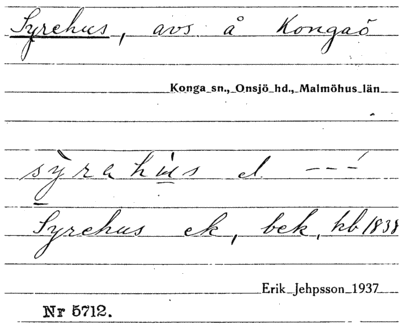 Syrehus, avs å Kongaö
Konga sn., Onsjö hd., Malmöhus län
sỳrahùs el ---́
Syrehus ek, bek, hb 1838
Erik Jehpsson 1937
Nr 5712.